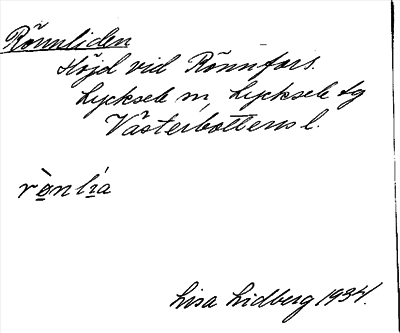 Rönnliden
Höjd vid Rönnfors.
Lycksele sn, Lycksele lg
Västerbottens l.
rȯ̀nlı́a
Lisa Lidberg 1934.